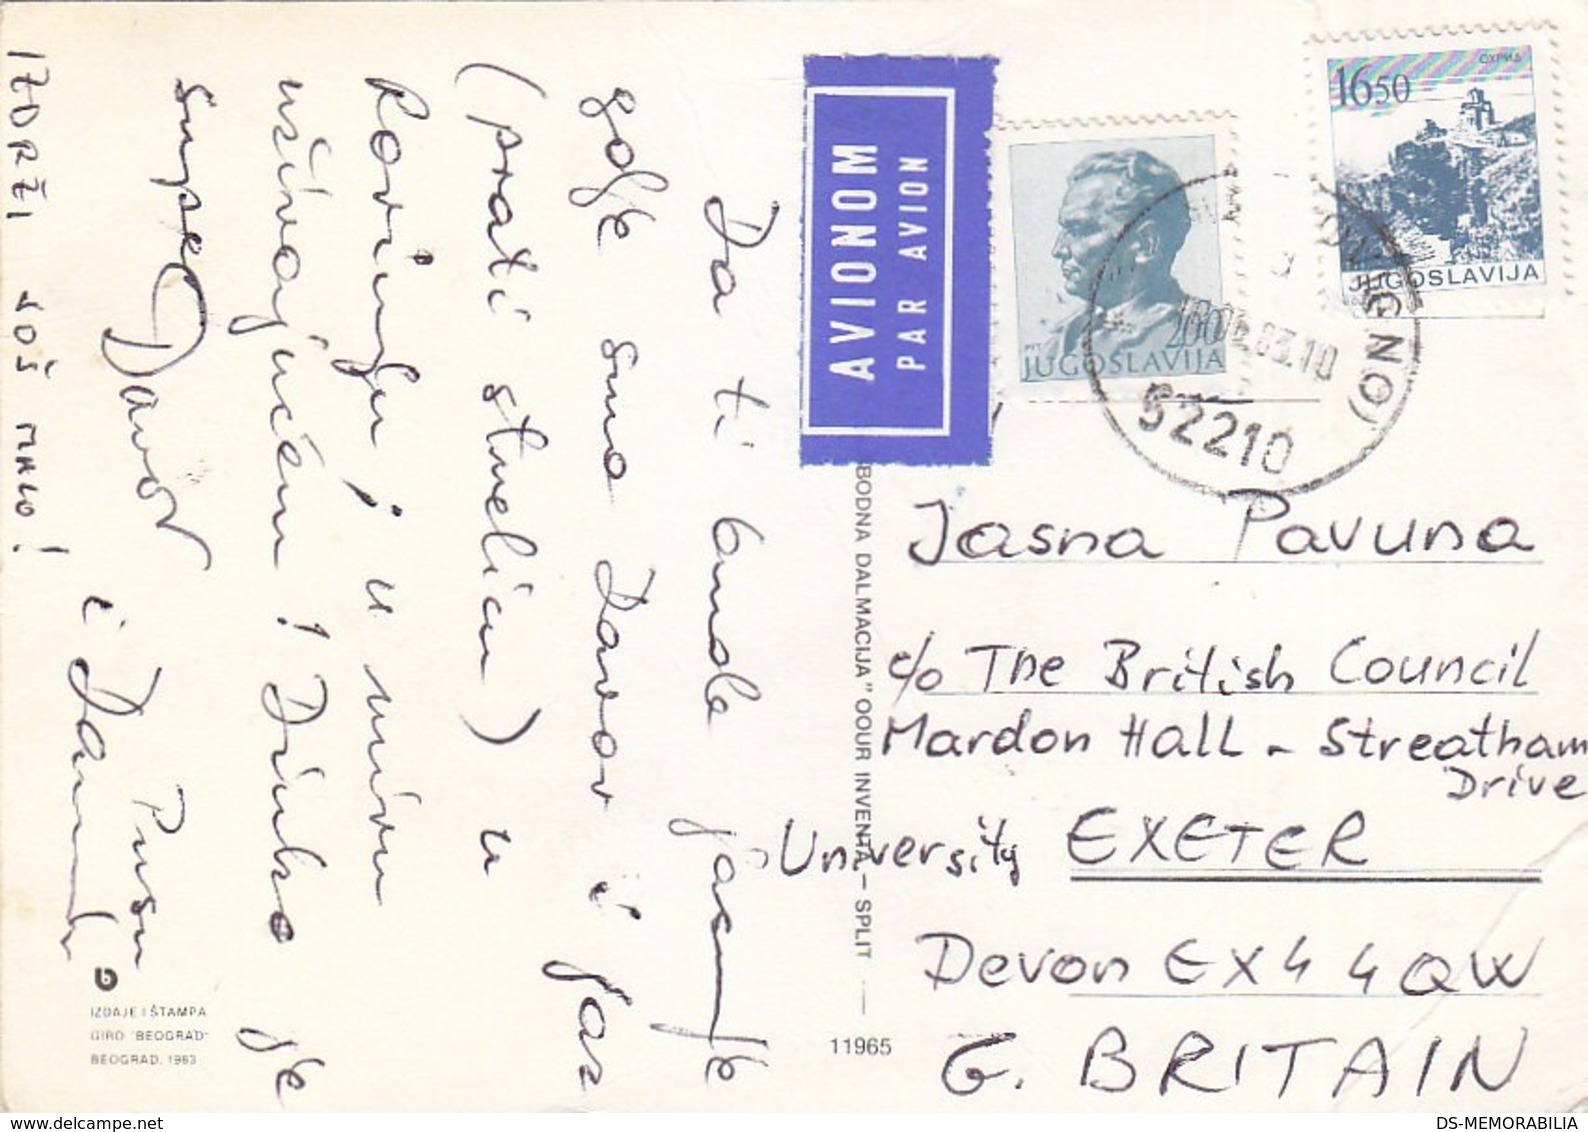 Da ti bude jasnije
gdje smo Davor i ja
(prati strelicu) u
Rovinju i u miru
uživajućem! Dinko je
super
Davor
Pusu
i
IZDRŽI JOŠ MALO!
IZDAJE I ŠTAMPA
GIRO "BEOGRAD"
BEOGRAD, 1983
BODNA DALMACIJA" OOUR INVENTA — SPLIT
11965
AVIONOM
PAR AVION
JUGOSLAVIJA
ОХРИД
1650
JUGOSLAVIJA
83.10
52210
Jasna Pavuna
c/o The British Council
Mardon Hall - Streatham
Drive
University EXETER
Devon EX4 4QW
G. BRITAIN
DS-MEMORABILIA
www.delcampe.net